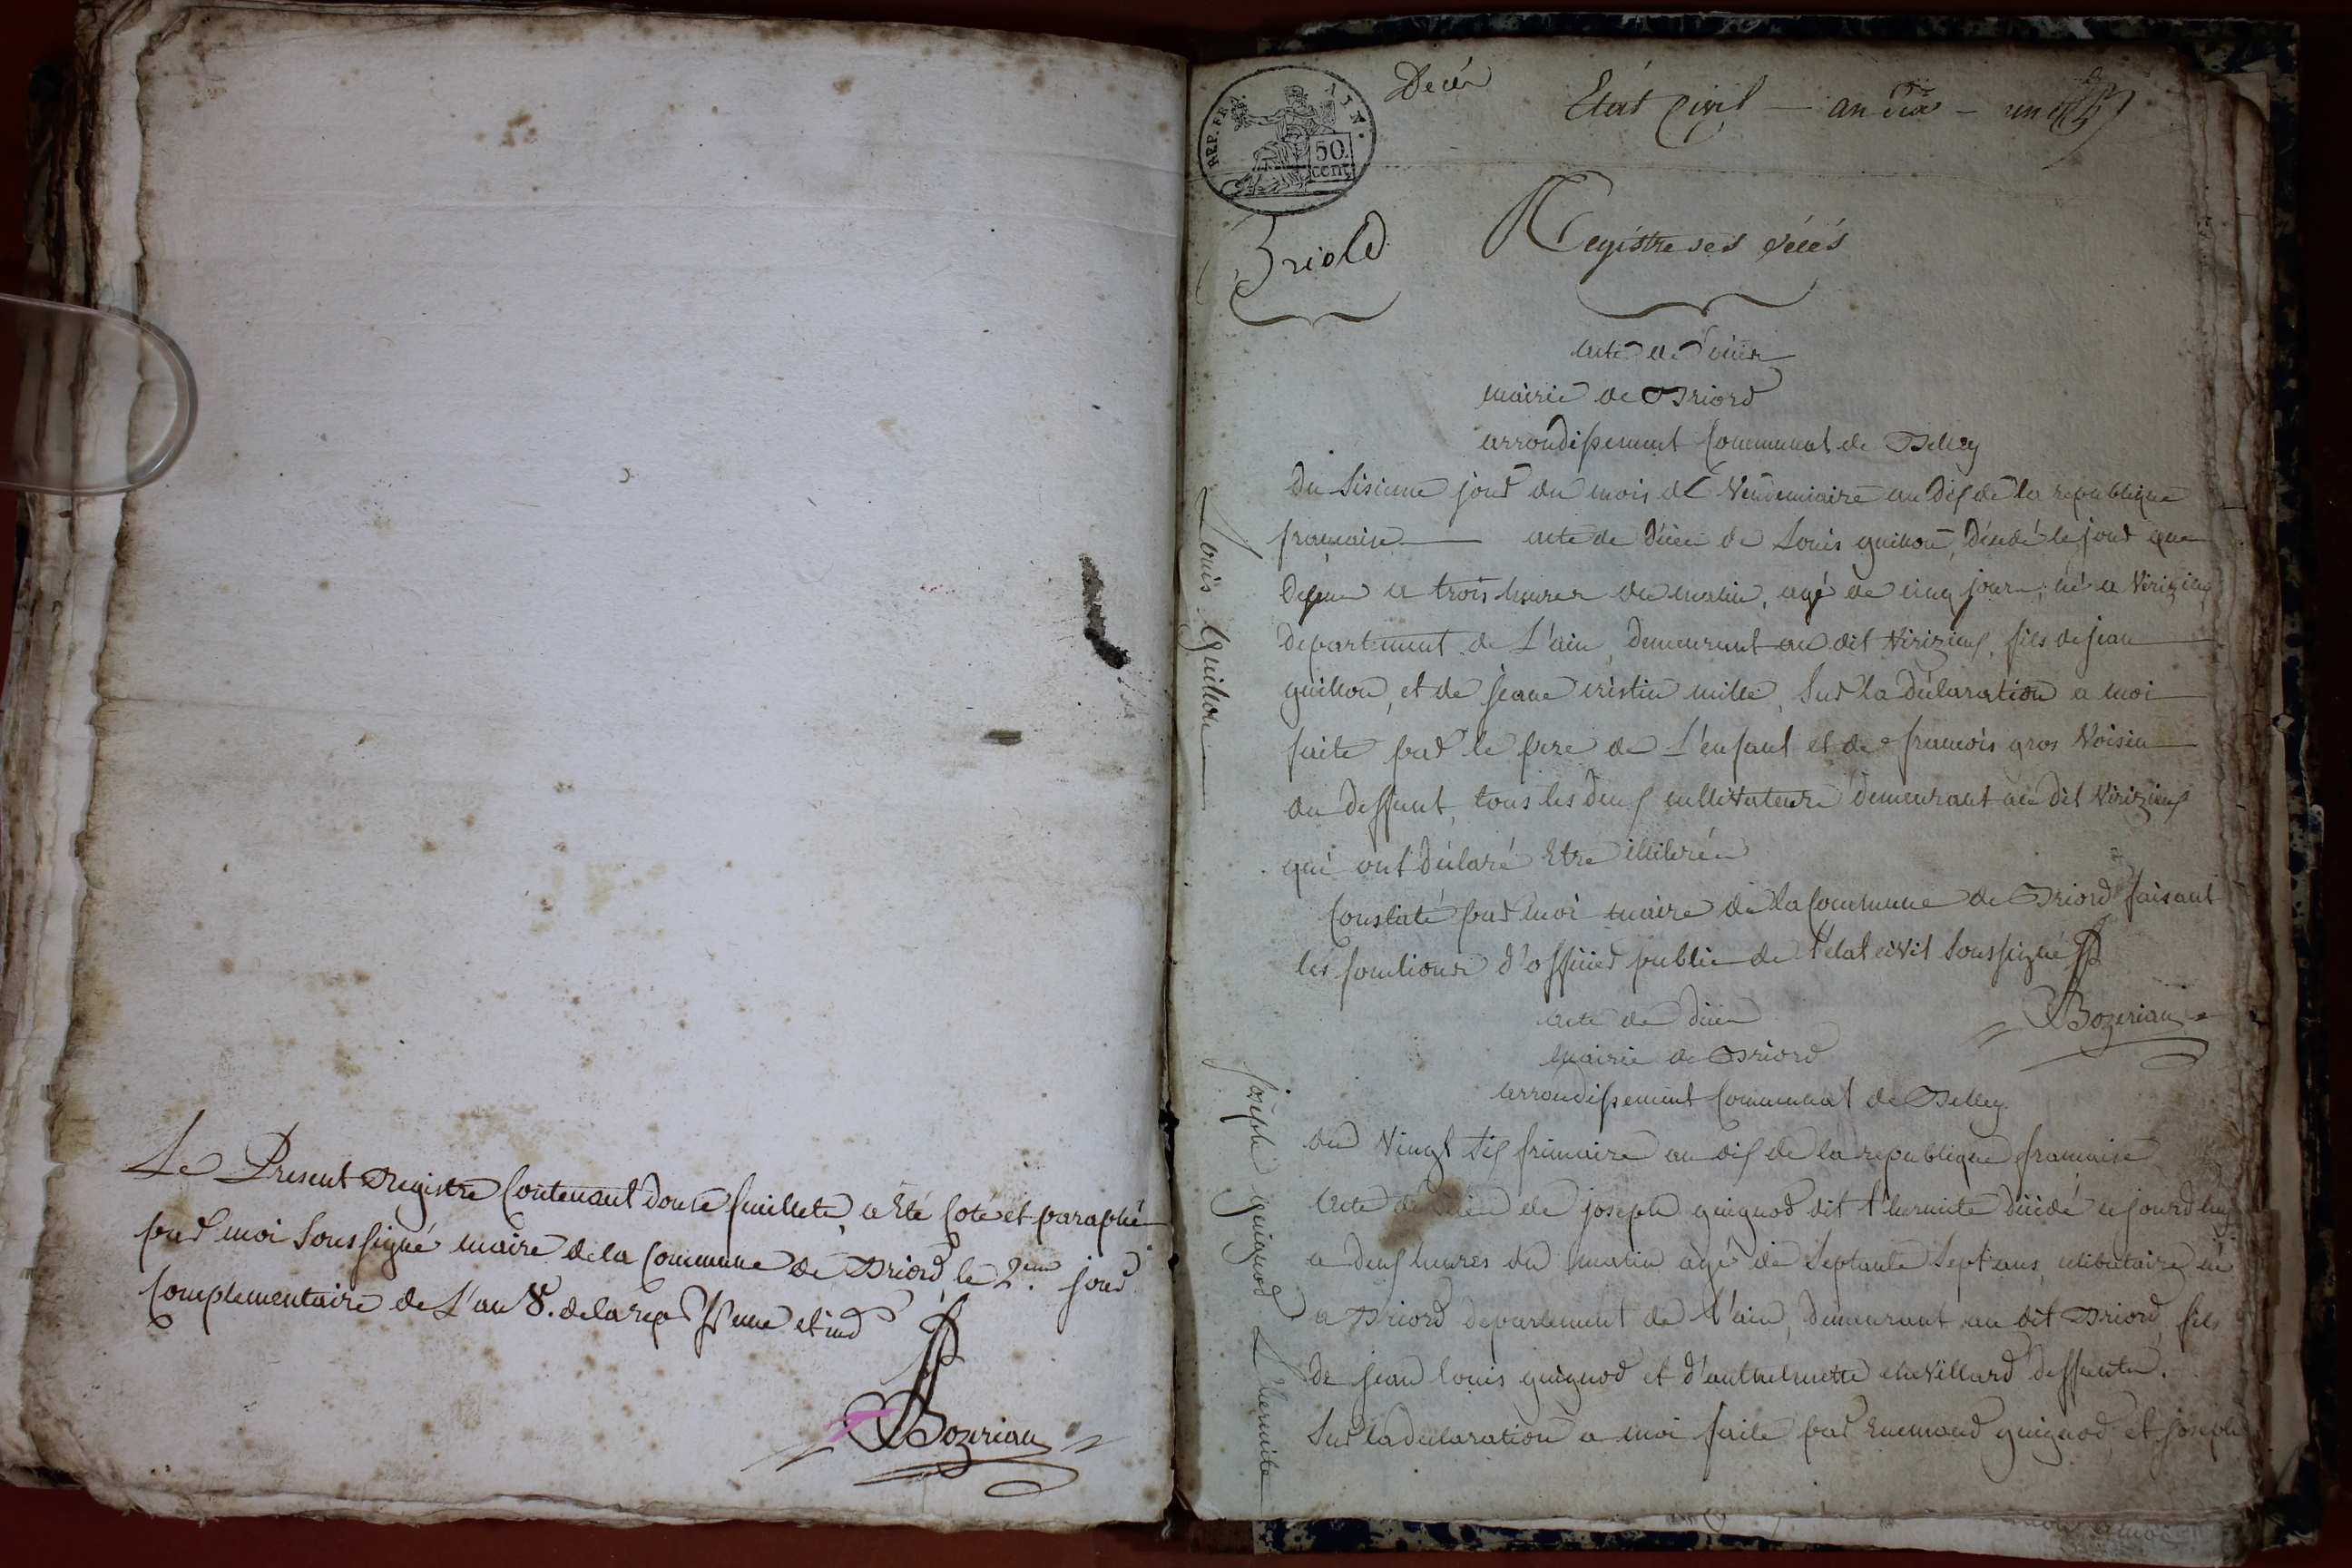 Le Present Registre Contenant douse feuillets, a Eté Coté et paraphé
par moi Soussigné maire de la Commune de Briord le 2.eme jour
Complementaire de L'an 8. de la rep fse une et ind
Bozerian
REP. FRA.
50
cent
Decès
Etat Civil — an dix — un
Briord
Registre des décés
Louis Guillon
acte de décès
mairie de Briord
arrondissement Communal de Belley
Du Sisieme jour du mois de Vendemiaire an dix de la republique
francaise — acte de décès de Louis guillon, Décédé le jour
a trois heures du matin, agé de cinq jours, né a Virizieu
departement de L'ain, demeurant au dit Virizieux, fils de jean
guillon, et de jeane cristin mille, Sur la déclaration a moi
faite par le pere de L'enfant et de francois gros Voisin
du deffunt, tous les deux cultivateurs demeurant au dit Virizieux
qui ont déclaré Etre illiterés
Constaté par moi maire de la Commune de Briord faisant
les fonctions d'officier public de l'état civil Soussigné
Bozerian
joseph Guignod L'hermite
acte de décès
mairie de Briord
arrondissement Communal de Belley
du Vingt six frimaire an dix de la republique francaise
Acte de décès de joseph guignod dit l'hermite décédé cejourdhuy
a deux heures du matin agé de Septante Sept ans, celibataire né
a Briord departement de l'ain, demeurant au dit Briord, fils
de jean louis guignod et d'anthelmette chevillard deffunts.
Sur la déclaration a moi faite par Enemond guignod, et joseph